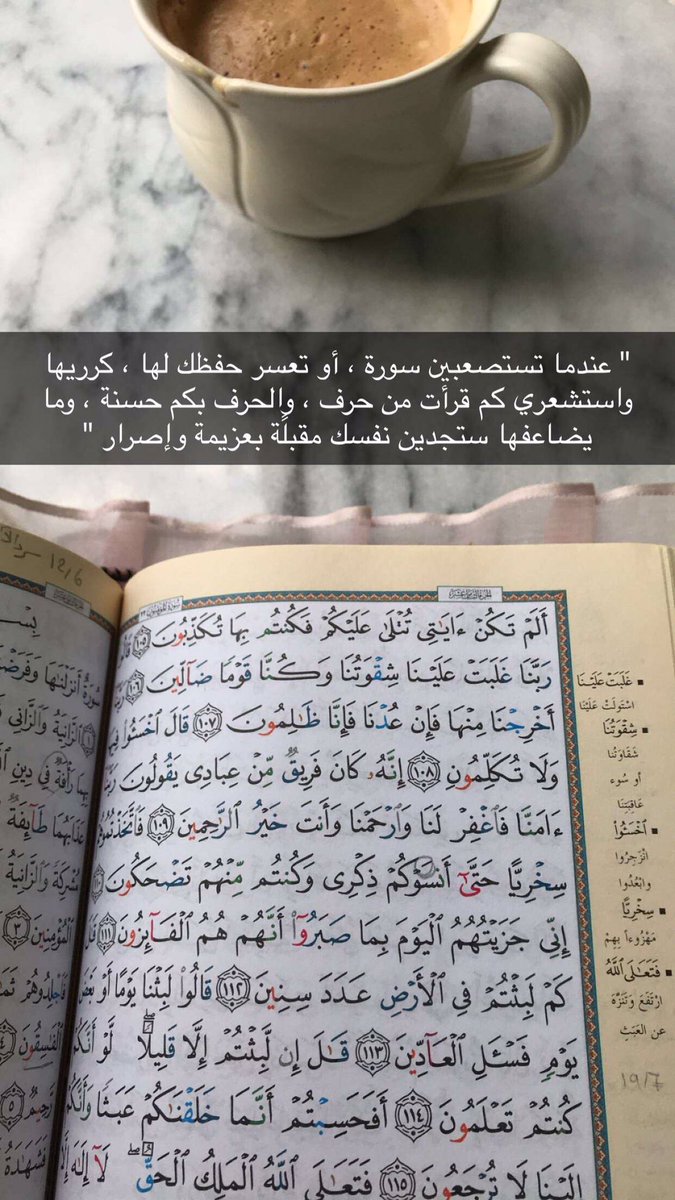 " عندما تستصعبين سورة ، أو تعسر حفظك لها ، كرريها
واستشعري كم قرأت من حرف ، والحرف بكم حسنة ، وما
يضاعفها ستجدين نفسك مقبلًة بعزيمة وإصرار "
12/6
أَلَمْ تَكُنْ ءَايَٰتِى تُتْلَىٰ عَلَيْكُمْ فَكُنتُم بِهَا تُكَذِّبُونَ ١٠٥ قَالُ
رَبَّنَا غَلَبَتْ عَلَيْنَا شِقْوَتُنَا وَكُنَّا قَوْمًا ضَآلِّينَ ١٠٦ رَبَّ
أَخْرِجْنَا مِنْهَا فَإِنْ عُدْنَا فَإِنَّا ظَٰلِمُونَ ١٠٧ قَالَ ٱخْسَـُٔوا۟ فِيهَ
وَلَا تُكَلِّمُونِ ١٠٨ إِنَّهُۥ كَانَ فَرِيقٌ مِّنْ عِبَادِى يَقُولُونَ رَبَّ
ءَامَنَّا فَٱغْفِرْ لَنَا وَٱرْحَمْنَا وَأَنتَ خَيْرُ ٱلرَّٰحِمِينَ ١٠٩ فَٱتَّخَذْتُمُو
سِخْرِيًّا حَتَّىٰٓ أَنسَوْكُمْ ذِكْرِى وَكُنتُم مِّنْهُمْ تَضْحَكُونَ
إِنِّى جَزَيْتُهُمُ ٱلْيَوْمَ بِمَا صَبَرُوٓا۟ أَنَّهُمْ هُمُ ٱلْفَآئِزُونَ ١١١ قَٰلَ
كَمْ لَبِثْتُمْ فِى ٱلْأَرْضِ عَدَدَ سِنِينَ ١١٢ قَالُوا۟ لَبِثْنَا يَوْمًا أَوْ بَعْضَ
يَوْمٍ فَسْـَٔلِ ٱلْعَآدِّينَ ١١٣ قَٰلَ إِن لَّبِثْتُمْ إِلَّا قَلِيلًا ۖ لَّوْ أَنَّكُمْ
كُنتُمْ تَعْلَمُونَ ١١٤ أَفَحَسِبْتُمْ أَنَّمَا خَلَقْنَٰكُمْ عَبَثًا وَأَنَّكُمْ
إِلَيْنَا لَا تُرْجَعُونَ ١١٥ فَتَعَٰلَى ٱللَّهُ ٱلْمَلِكُ ٱلْحَقُّ ۖ لَآ إِلَٰهَ إِلَّا
غَلَبَتْ عَلَيْنَا
اسْتَوْلَتْ عَلَيْنَا
شِقْوَتُنَا
شَقَاوَتُنَا
أو سُوء
عَاقِبَتِنَا
ٱخْسَـُٔوا۟
انْزَجِرُوا
وابْعُدُوا
سِخْرِيًّا
مَهْزُوءاً بِهِمْ
فَتَعَٰلَى ٱللَّهُ
ارْتَفَعَ وَتَنَزَّهَ
عن العَبَثِ
19/7
سُورَةٌ أَنزَلْنَٰهَا وَفَرَضْ
ٱلزَّانِيَةُ وَٱلزَّانِى
بِهِمَا رَأْفَةٌ فِى دِينِ ٱ
عَذَابَهُمَا طَآئِفَةٌ
مُشْرِكَةً وَٱلزَّانِيَةُ
ٱلْمُؤْمِنِينَ ٣
فَٱجْلِدُوهُمْ ثَمَ
ٱلْفَٰسِقُونَ ٤
رَّحِيمٌ ٥
فَشَهَٰدَةُ